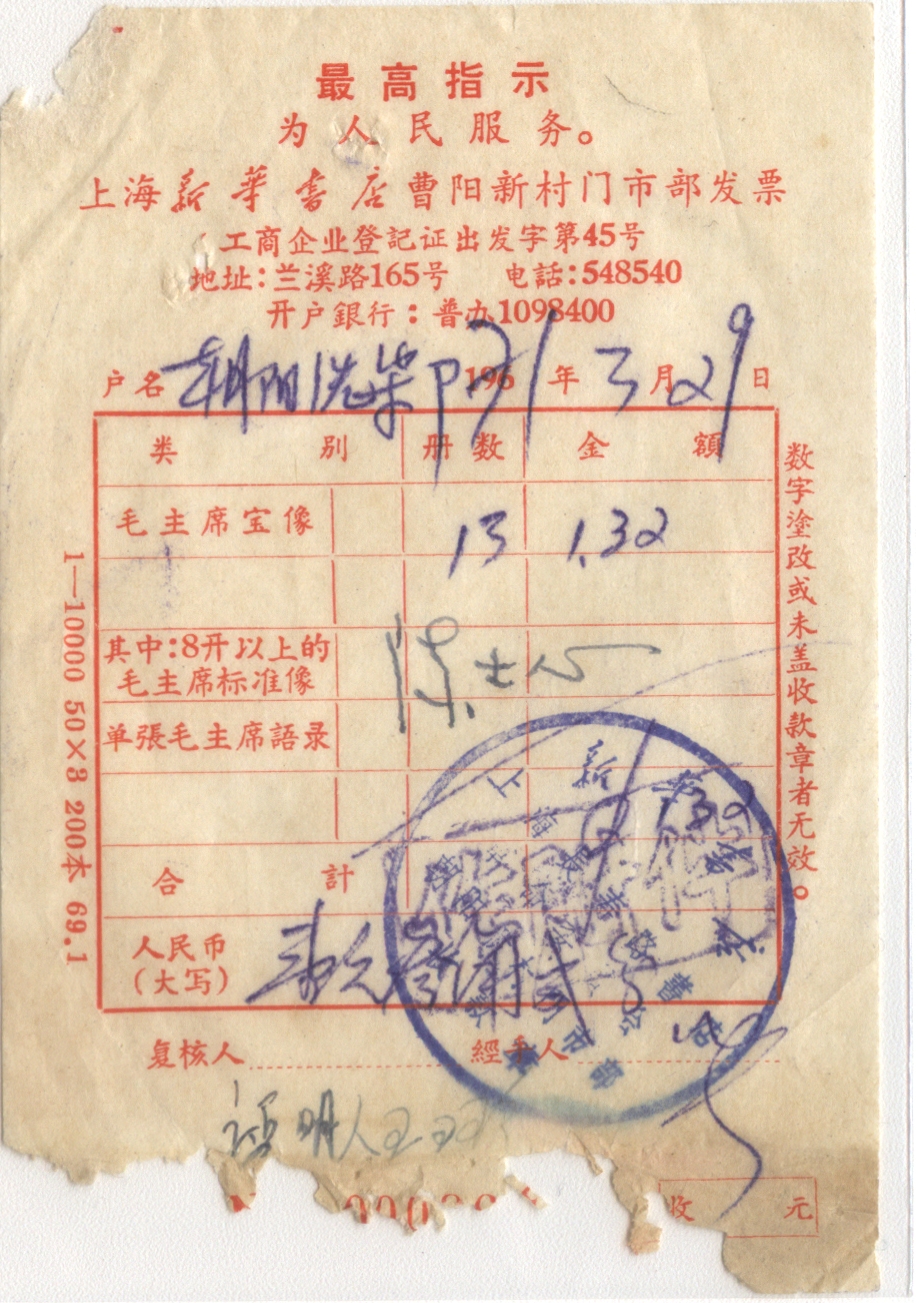 最高指示
为人民服务。
上海新華書店曹阳新村门市部发票
工商企业登記证出发字第45号
地址:兰溪路165号 电話:548540
开户銀行:普办1098400
户名 朝阳 196 71年3月29日
类别 册数 金額
毛主席宝像 13 1.32
其中:8开以上的
毛主席标准像
单張毛主席語录
合計 132
人民币
(大写) 壹元叁角贰分
复核人 經手人
证明人
收 元
数字塗改或未盖收款章者无效。
1—10000 50×3 200本 69.1